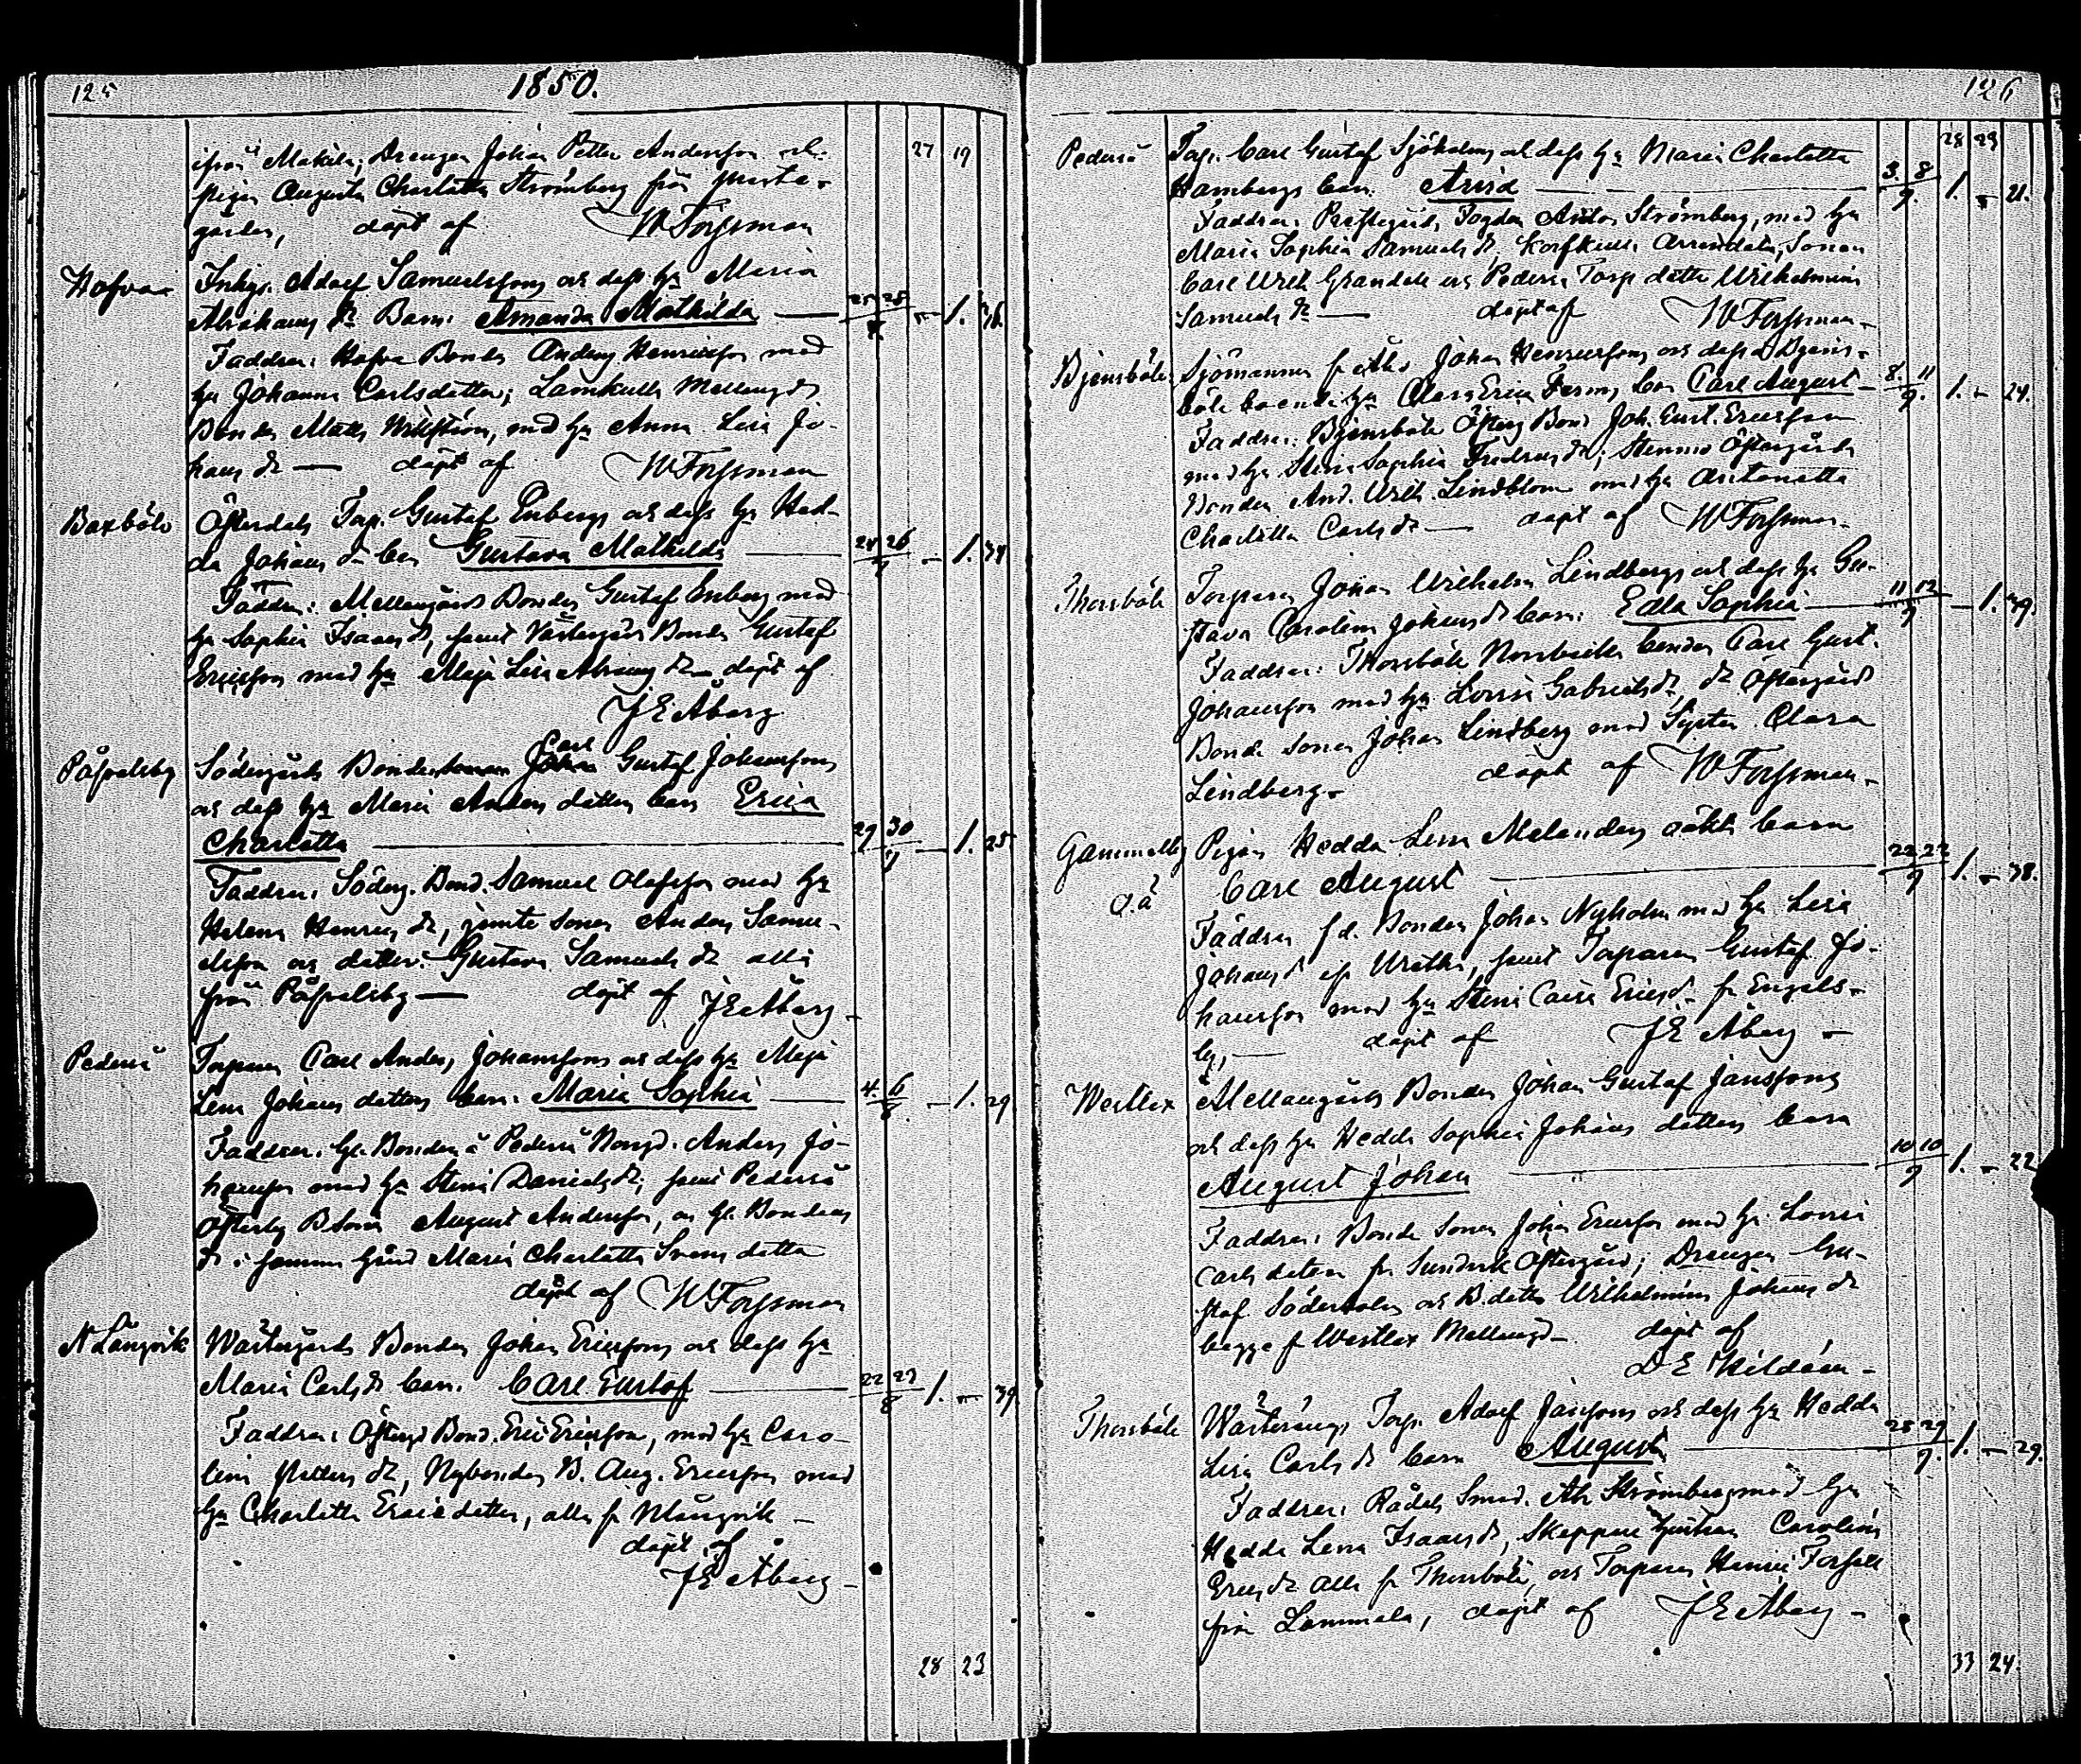 125 1850.
27 19
ifrån Makila, Drengen Johan Petter Andersson och
pigan Augusta Charlotta Strömberg från preste-
gården, döpt af W Forssman
Hafvar Inhys. Adolf Samuelssons och dess hu Maria
Abrahams dr Barn: Amanda Mathilda — 25 28/7 — 1. 36.
Faddrar: Hafva Bonden Anders Henricsson med
hu Johanna Carlsdotter; Lamkulla Mellangds
Bonden Matts Willström, med hu Anna Lisa Jo-
hans dr — döpt af W Forssman
Baxböle Östendals Torp. Gustaf Enbergs och dess hu Hed-
da Johans dr barn Gustava Mathilda — 24 26/7 — 1. 34
Faddrar: Mellangårds Bonden Gustaf Enberg med
hu Sophia Isaacs dr, samt Västergårds Bonden Gustaf
Ericsson med hu Maja Lisa Abrams dr — döpt af
J E Åberg
Påfvalsby Södergårds Bonden Carl Gustaf Johanssons
och dess hu Maria Anders dotters barn Erica
Charlotta — 29 30/7 — 1. 25
Faddrar: Söderg. Bond. Samuel Olofsson med hu
Helena Henrics dr, jemte sonen Anders Samu-
elsson och dotter Gustava Samuels dr alla
från Påfvalsby — döpt af J E Åberg
Pederså Torparen Carl Anders Johanssons och dess hu Maja
Lena Johans dotters barn: Maria Sophia — 4. 6/8. — 1. 29
Faddrar: Gl. Bonden å Pederså Norrgd. Anders Jo-
hansson med hu Stina Daniels dr; samt Pederså
Österby B. Sonen August Andersson, och Gl. Bondens
dr i samma gård Maria Charlotta Svens dotter
döpt af W Forssman
N Långvik Westergårds Bonden Johan Ericssons och dess hu
Maria Carls dr barn. Carl Gustaf — 22 23/8 1. — 39
Faddrar: Östergd Bond. Eric Ericsson, med hu Caro-
lina Petters dr, Nybonden B. Aug. Ericsson med
hu Charlotta Ericsdotter, alla fr Nlångvik —
döpt af
J E Åberg —
28 23
126
28 23
Pederså Torp. Carl Gustaf Sjöholms och dess hu Maria Charlotta
Hambergs barn. Arvid — 3. 8/9. 1. — 21.
Faddrar: Prestegårds Fogden Anton Strömberg, med hu
Maria Sophia Samuels dr, arrendators Sonen
Carl Wilh. Grandell och Pederså Torp dotter Wilhelmina
Samuels dr — döpt af W Forssman —
Bjensböle Sjömannen fr Åbo Johan Henricssons och dess å Bjens-
böle boende hu Clara Erica Ferms barn Carl August — 8. 11/9. 1. — 24.
Faddrar: Bjensböle Österg Bond Joh. Gust. Ericsson
med hu Stina Sophia Fredrics dr; Stennäs Östergårds
Bonden And. Wilh. Lindblom med hu Antonetta
Charlotta Carls dr — döpt af W Forssman —
Thorsböle Torparen Johan Wilhelm Lindbergs och dess hu Gu-
stava Carolina Johans dr barn: Edla Sophia — 11 12/9 — 1. 39.
Faddrar: Thorsböle Norrbacka bonden Carl Gust.
Johansson med hu Lovisa Gabriels dr, dr Östergårds
Bonde sonen Johan Lindberg med Syster Clara
Lindberg — döpt af W Forssman —
Gammelby Pigan Hedda Lena Melanders oäkta barn
o.ä Carl August — 22 22/9 1. — 38.
Faddrar f d. Bonden Johan Nyholm med hu Lisa
Johans dr, samt Torparen Gustaf Jo-
hansson med hu Stina Caisa Erics dr fr Engels-
by, — döpt af J E Åberg —
Westlax Mellangårds Bonden Johan Gustaf Janssons
och dess hu Hedda Sophia Johans dotters barn
August Johan — 10 10/9 1. — 22
Faddrar: Bonde Sonen Johan Ericsson med hu Lovisa
Carls doter fr Sundvik Östergård; Drengen Gu-
staf Söderholm och B. dottr Wilhelmina Johans dr
begge fr Westlax Mellangd — döpt af
D E Hildéen —
Thorsböle Westerängs Torp. Adolf Janssons och dess hu Hedda
Lisa Carls dr barn August — 25 29/9. 1. — 29.
Faddrar: Rådals Smed. Ab. Strömberg med hu
Hedda Lena Isaacs dr, Skeppare hustrun Carolina
Erics dr alla fr Thorsböle, och Torparen Henric Forssell
från Lammala, döpt af J E Åberg —
33 24.